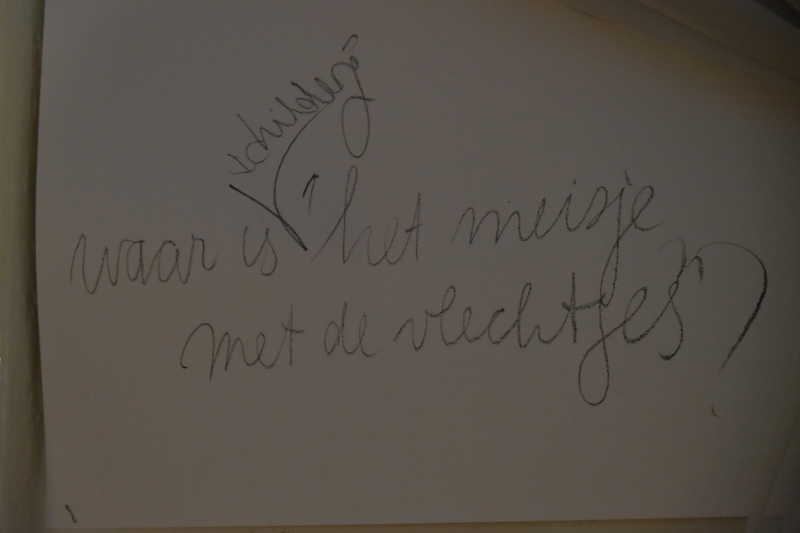 schilderij
waar is " het meisje
met de vlechtjes" ?